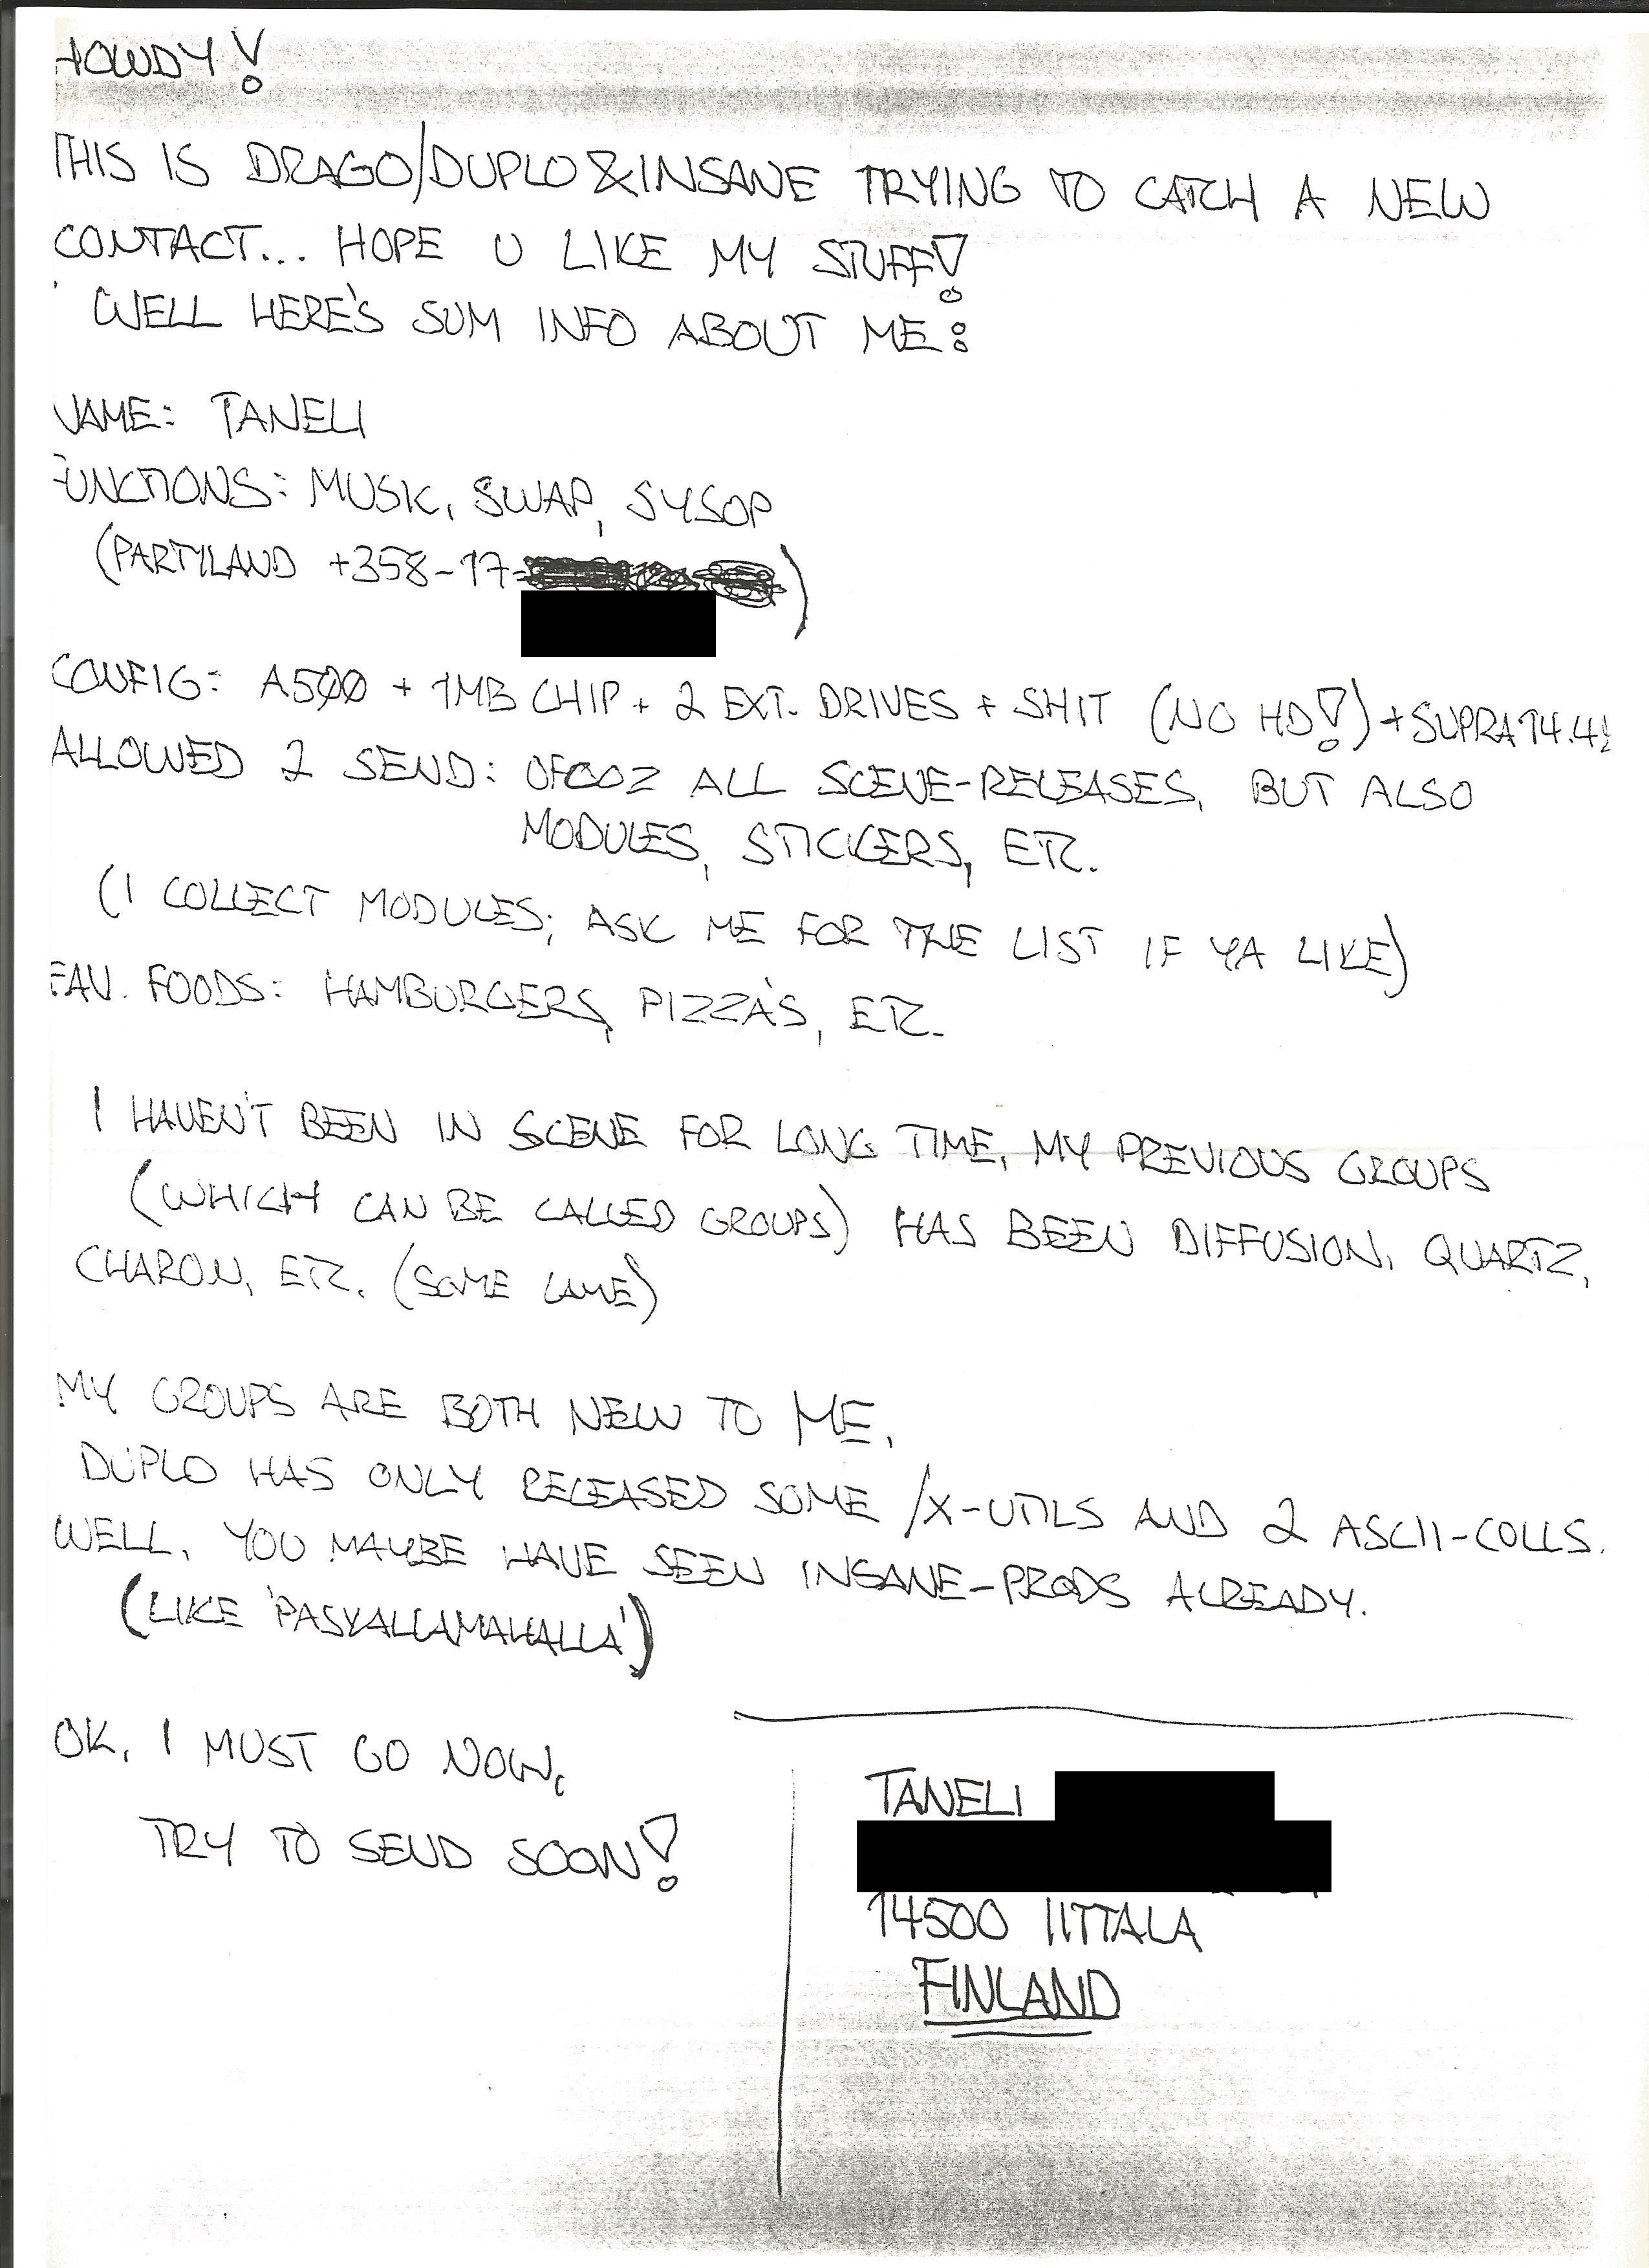 HOWDY!
THIS IS DRAGO/DUPLO & INSANE TRYING TO CATCH A NEW
CONTACT... HOPE U LIKE MY STUFF!
WELL HERE'S SUM INFO ABOUT ME:
NAME: TANELI
FUNCTIONS: MUSIC, SWAP, SYSOP
(PARTYLAND +358-17-)
CONFIG: A500 + 1MB CHIP + 2 EXT. DRIVES + SHIT (NO HD!) + SUPRA 14.4!
ALLOWED 2 SEND: OFCOZ ALL SCENE-RELEASES, BUT ALSO
MODULES, STICKERS, ETC.
(I COLLECT MODULES; ASK ME FOR THE LIST IF YA LIKE)
FAV. FOODS: HAMBURGERS, PIZZA'S, ETC.
I HAVEN'T BEEN IN SCENE FOR LONG TIME, MY PREVIOUS GROUPS
(WHICH CAN BE CALLED GROUPS) HAS BEEN DIFFUSION, QUARTZ,
CHARON, ETC. (SOME LAME)
MY GROUPS ARE BOTH NEW TO ME.
DUPLO HAS ONLY RELEASED SOME /X-UTILS AND 2 ASCII-COLLS.
WELL, YOU MAYBE HAVE SEEN INSANE-PRODS ALREADY.
(LIKE )
OK, I MUST GO NOW,
TRY TO SEND SOON!
TANELI
14500 IITTALA
FINLAND